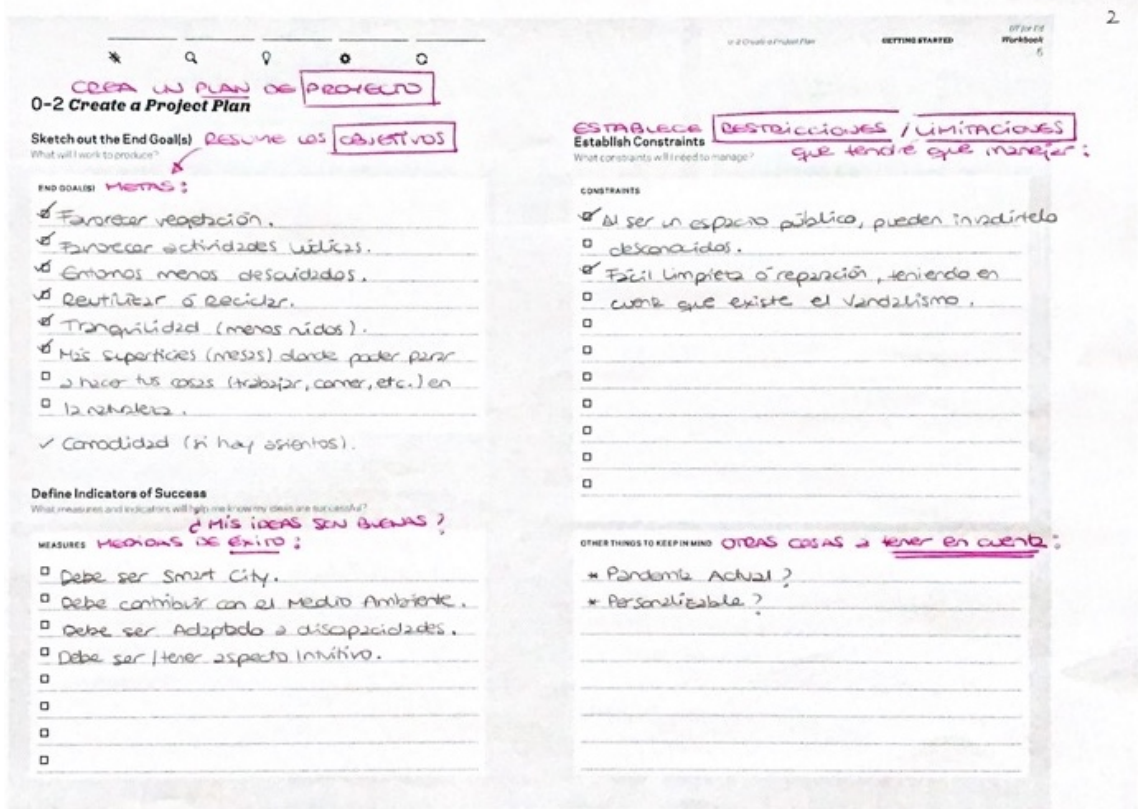 2
0-2 Create a Project Plan
GETTING STARTED
Workbook
CREA UN PLAN DE PROYECTO
0-2 Create a Project Plan
Sketch out the End Goal(s) RESUME LOS OBJETIVOS
What will I work to produce?
END GOAL(S) METAS:
Favorecer vegetación.
Favorecer actividades lúdicas.
Entornos menos descuidados.
Reutilizar ó Reciclar.
Tranquilidad (menos ruidos).
Más superficies (mesas) donde poder parar
a hacer tus cosas (trabajar, comer, etc.) en
la naturaleza.
✓ Comodidad (si hay asientos).
Define Indicators of Success
What measures and indicators will help me know my ideas are successful?
¿MIS IDEAS SON BUENAS?
MEASURES MEDIDAS DE ÉXITO:
Debe ser Smart City.
Debe contribuir con el Medio Ambiente.
Debe ser Adaptado a discapacidades.
Debe ser / tener aspecto Intuitivo.
ESTABLECE RESTRICCIONES / LIMITACIONES
Establish Constraints que tendré que manejar:
What constraints will I need to manage?
CONSTRAINTS
Al ser un espacio público, pueden invadírtelo
desconocidos.
Fácil limpieza ó reparación, teniendo en
cuenta que existe el Vandalismo.
OTHER THINGS TO KEEP IN MIND OTRAS COSAS a tener en cuenta:
* Pandemia Actual?
* Personalizable?